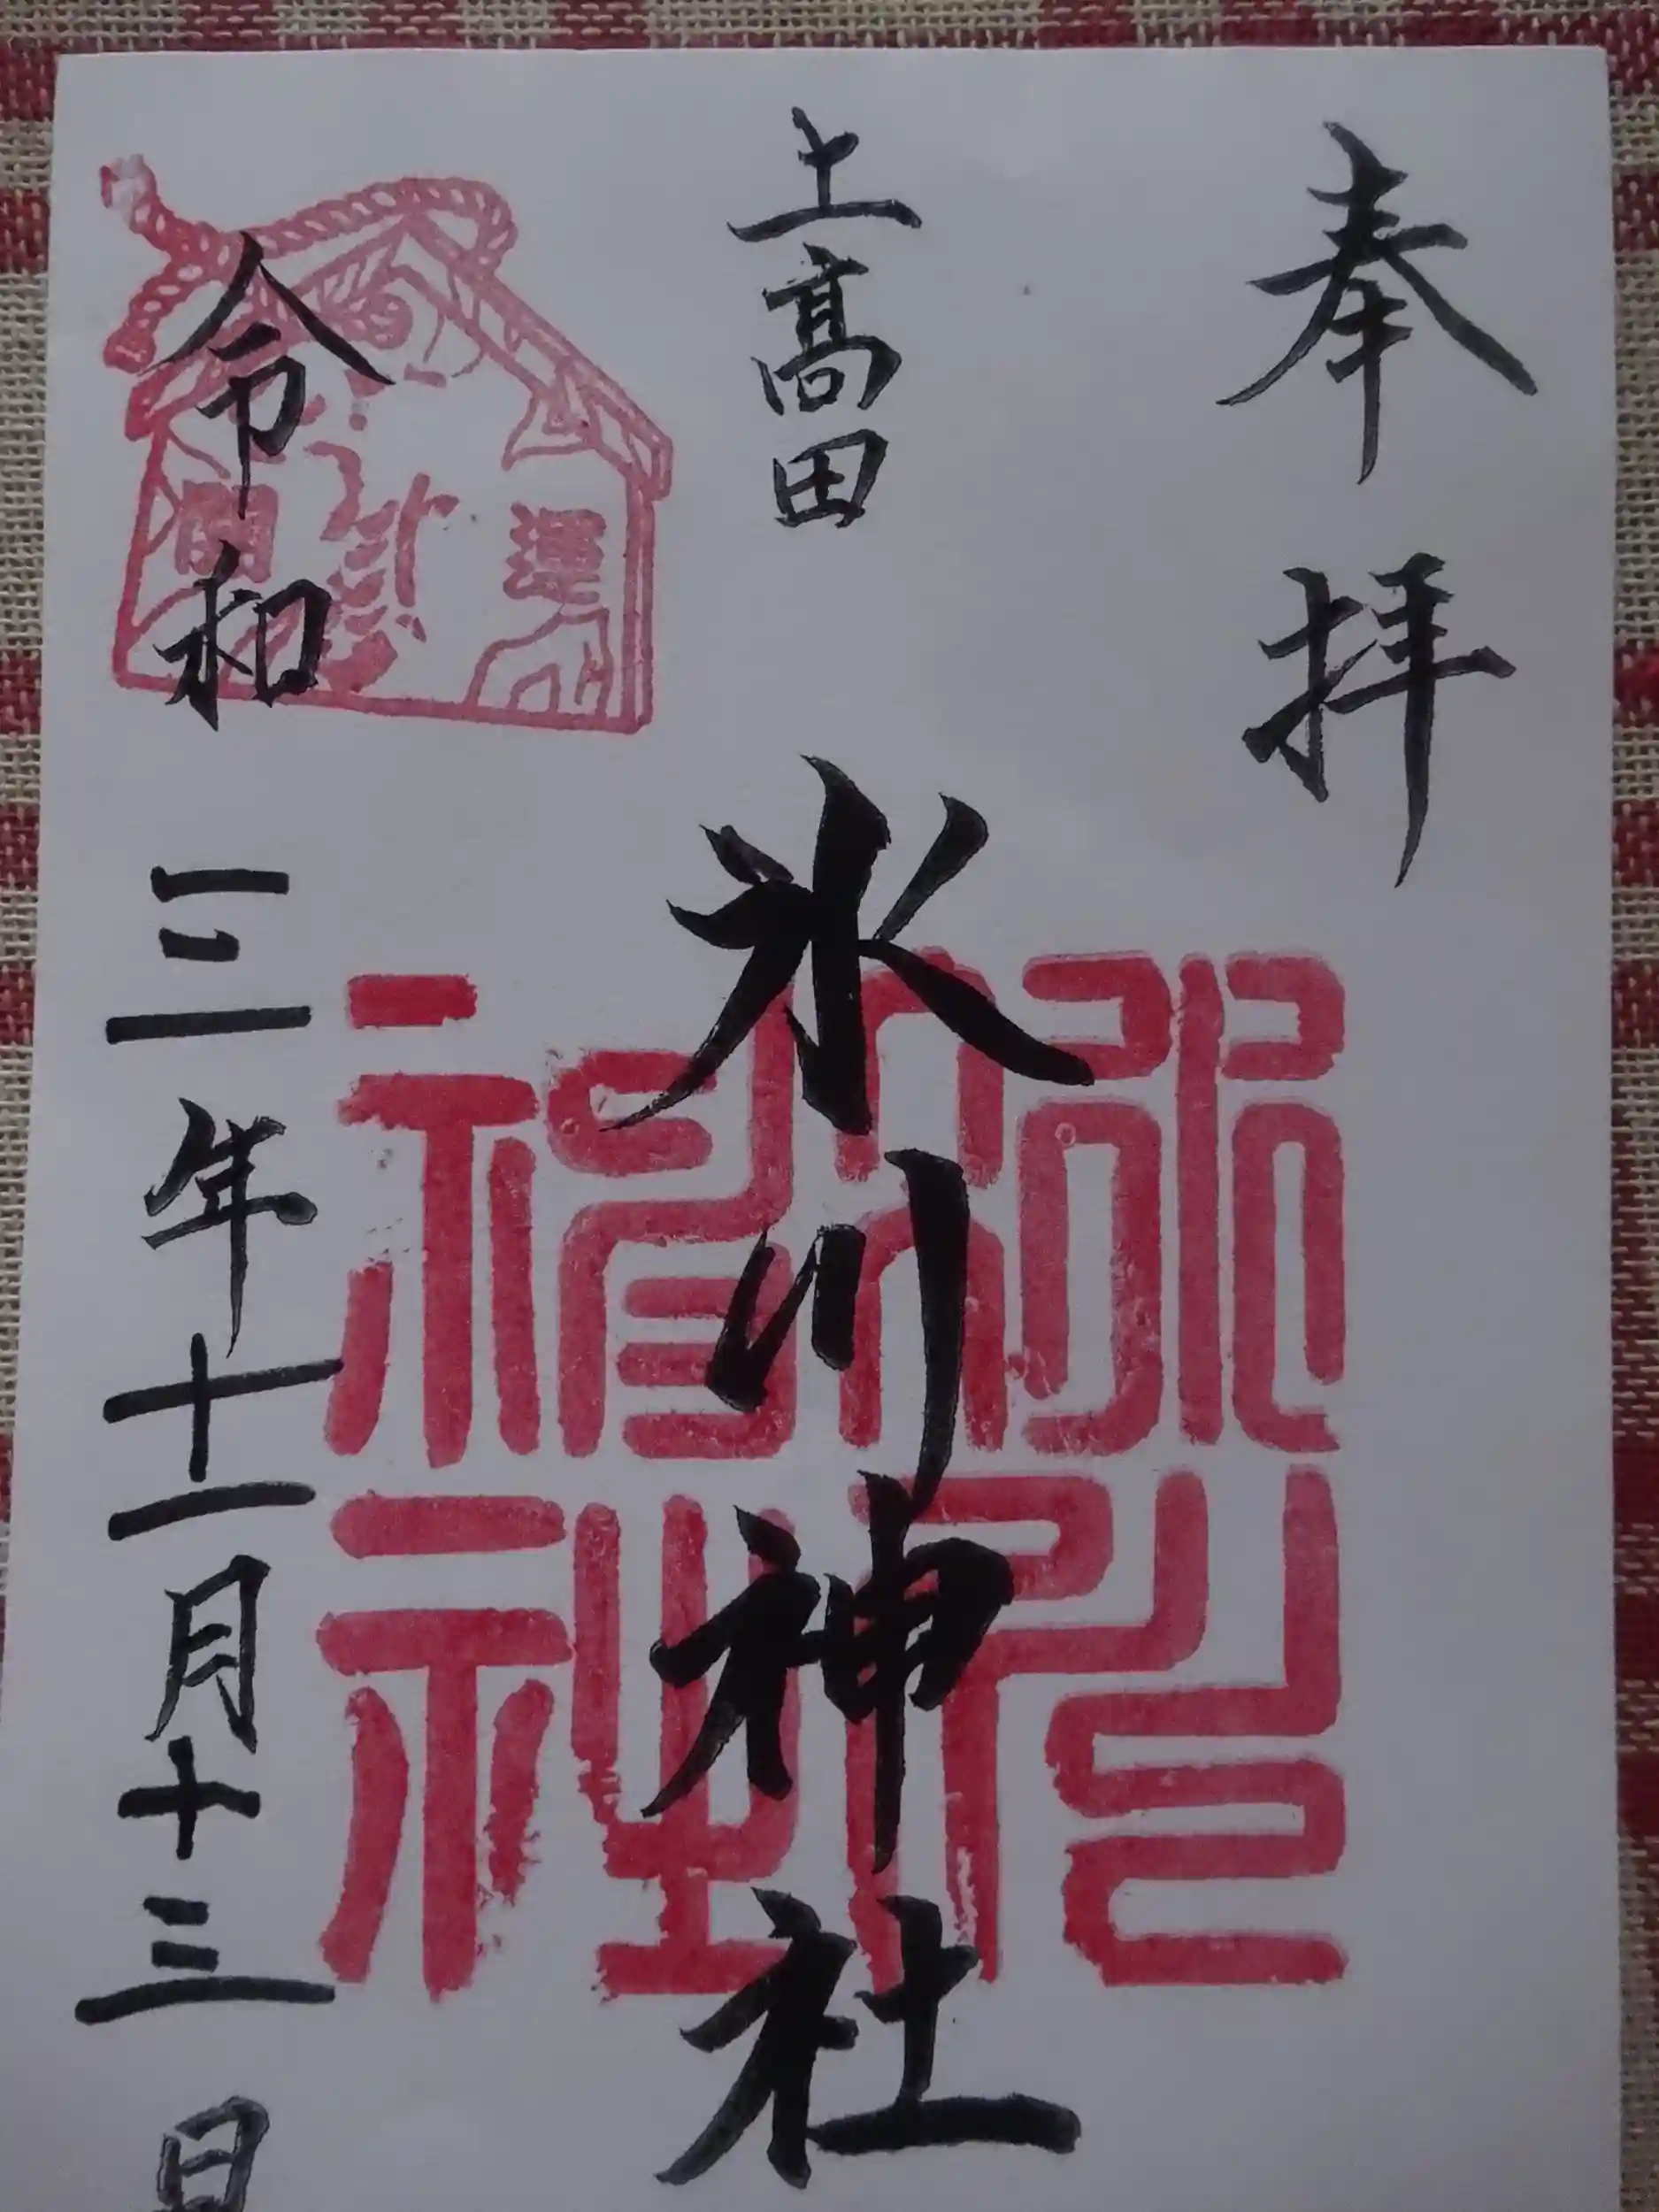 奉拝
上高田
氷川神社
氷川神社
開運
令和三年十一月十三日